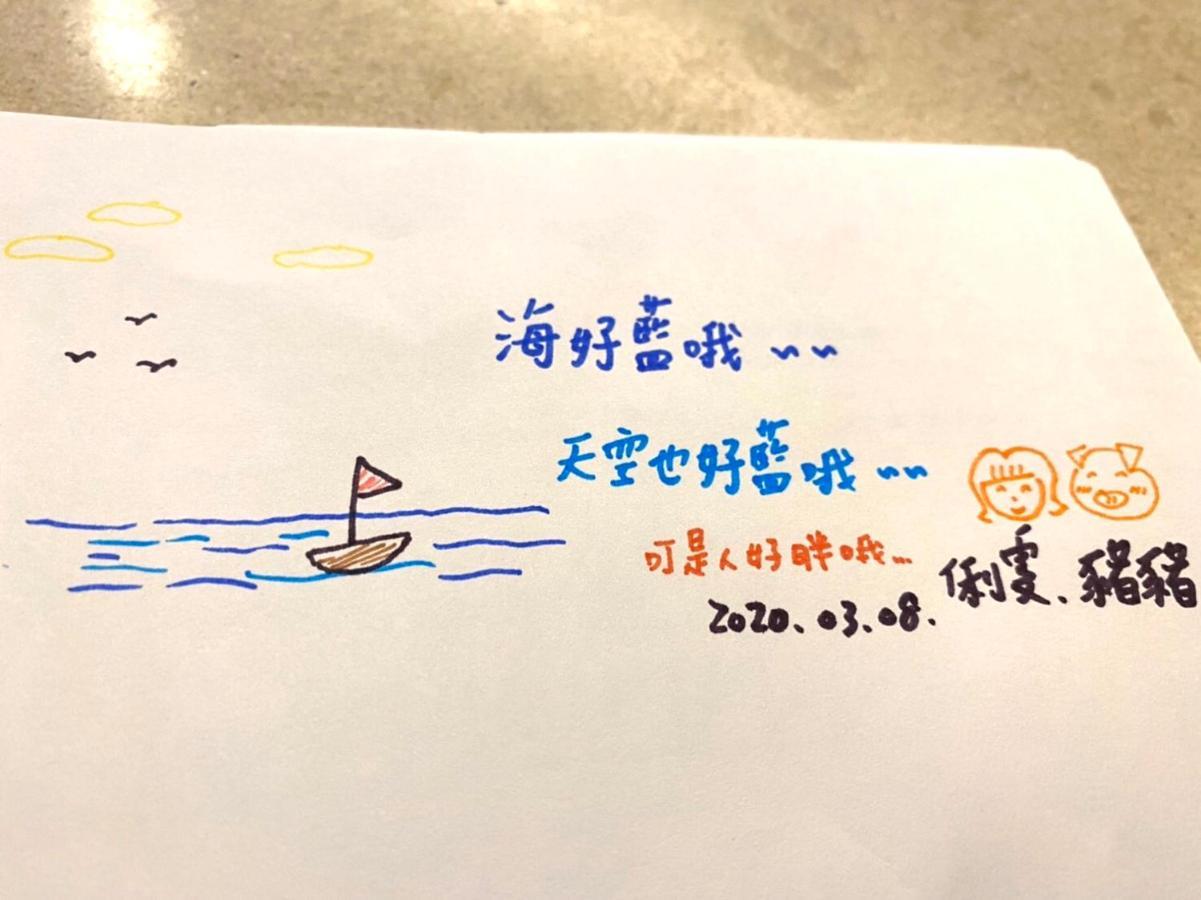 海好藍哦~~
天空也好藍哦~~
可是人好胖哦...
2020.03.08.
俐雯、豬豬